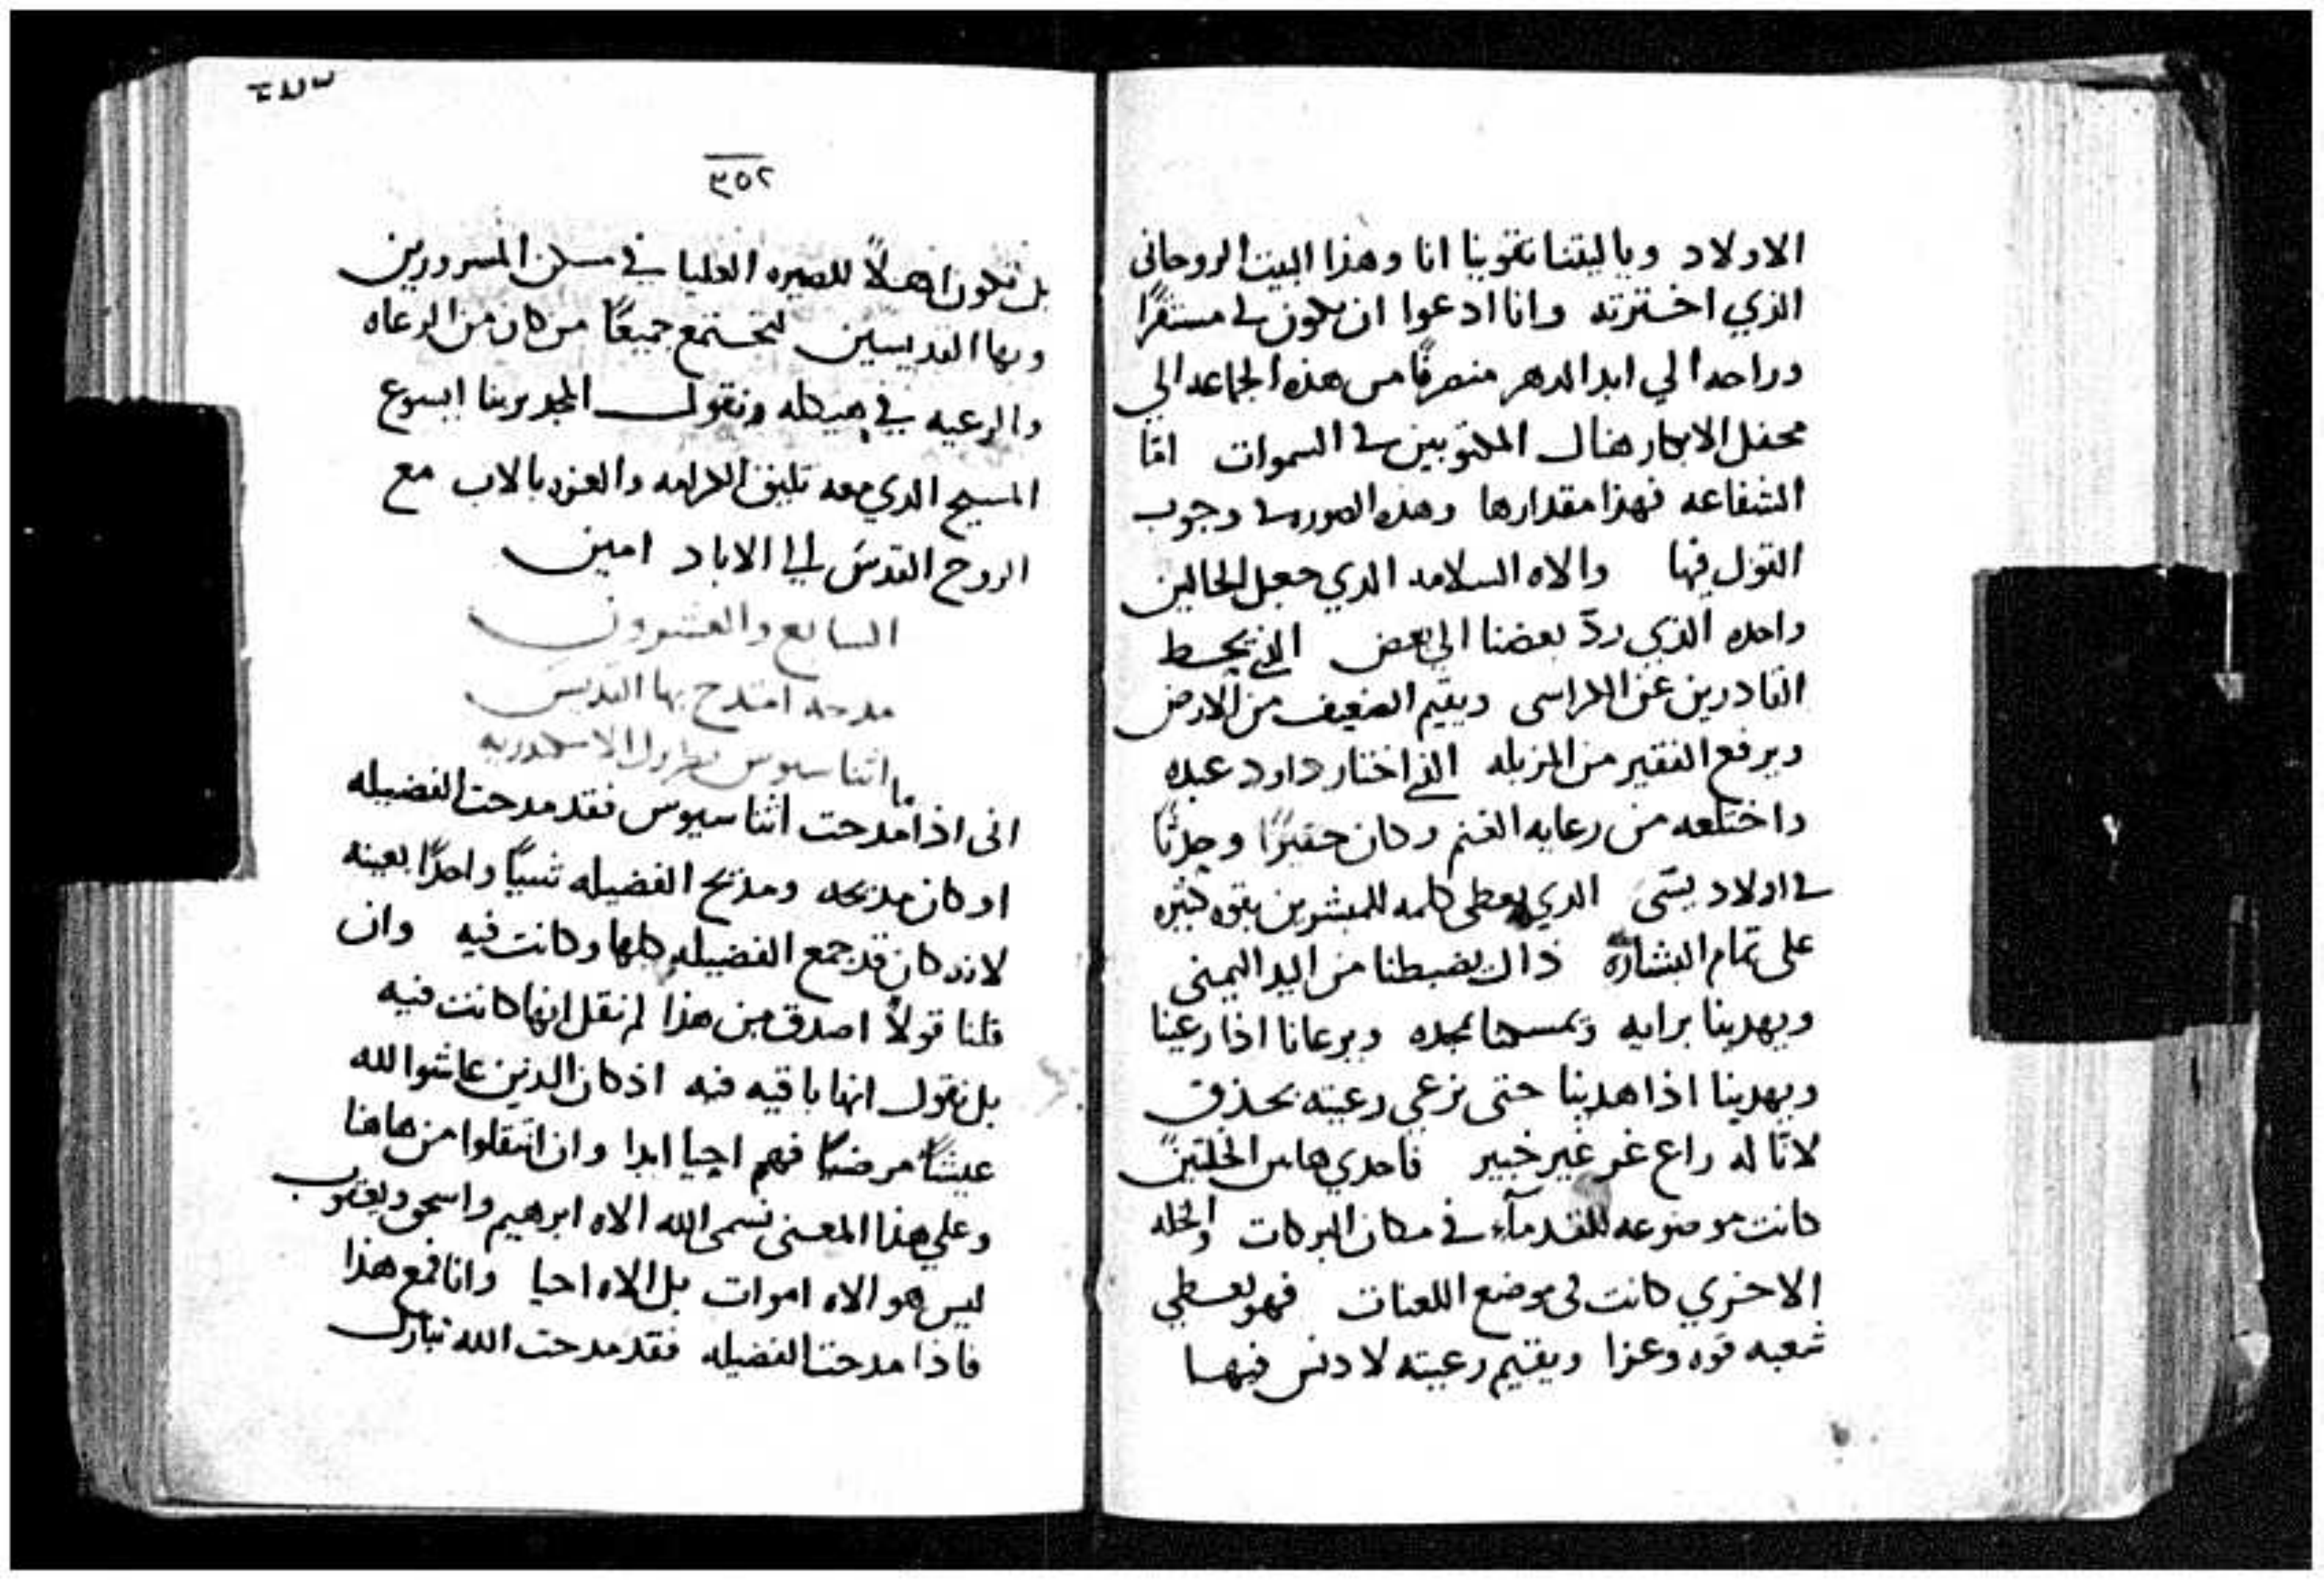 الاولاد وياليتنا تقوينا انا وهذا البيت الروحاني
الذي اخترته وانا ادعوا ان يكون لي مستقرًا
وراحه الي ابد الدهر منصرفًا من هذه الجماعه الي
محفل الابكار هناك المكتوبين في السموات امّا
الشفاعه فهذا مقدارها وهذه الصوره في وجوب
القول فيها والاه السلامه الدي جعل الحالين
واحده الذي ردّ بعضنا الي بعض الذي يحط
القادرين عن الكراسى ويقيم الضعيف من الارض
ويرفع الفقير من المزبله الذي اختار داود عبده
واختلعه من رعايه الغنم وكان حقيرًا وحدثًا
في اولاد يسّى الدي يعطى كلمه للمبشرين بقوه كثيره
على تمام البشاره ذاك يضبطنا من اليد اليمنى
ويهدينا برايه بمجده ويرعانا اذا رعينا
ويهدينا اذا هدينا حتى نرعي رعيته بحذق
لانّا له راع غر غير خبير فاحدي هاتين الخلتين
كانت موضوعه للقدمآء في مكان البركات والخله
الاخري كانت في موضع اللعنات فهو يعطي
شعبه قوه وعزا ويقيم رعيته لا دنس فيها
٣٥٢
بل تكون اهلاً للصيره العليا في مسكن المسرورين
وبها القديسين لتجتمع جميعًا من كان من الرعاه
والرعيه في هيكله ونقول المجد بربنا ايسوع
المسيح الدي معه تليق الكرامه والعزه بالاب مع
الروح القدس الي الاباد امين
السابع والعشرون
مدحه امتدح بها القديس
اثناسيوس بطرك الاسكندريه
انى اذا ما مدحت اثناسيوس فقد مدحت الفضيله
اد كان مديحه ومديح الفضيله شيًا واحدًا بعينه
لانه كان قد جمع الفضيله كلها وكانت فيه وان
قلنا قولاً اصدق من هذا لم نقل انها كانت فيه
بل نقول انها باقيه فيه اذ كان الدين عاشوا لله
عيشًا مرضيًا فهم احيا ابدا وان انتقلوا من هاهنا
وعلي هذا المعنى تسمى الله الاه ابرهيم واسحق ويعقوب
ليس هو الاه اموات بل الاه احيا وانا فمع هذا
فاذا مدحت الفضيله فقد مدحت الله تبارك